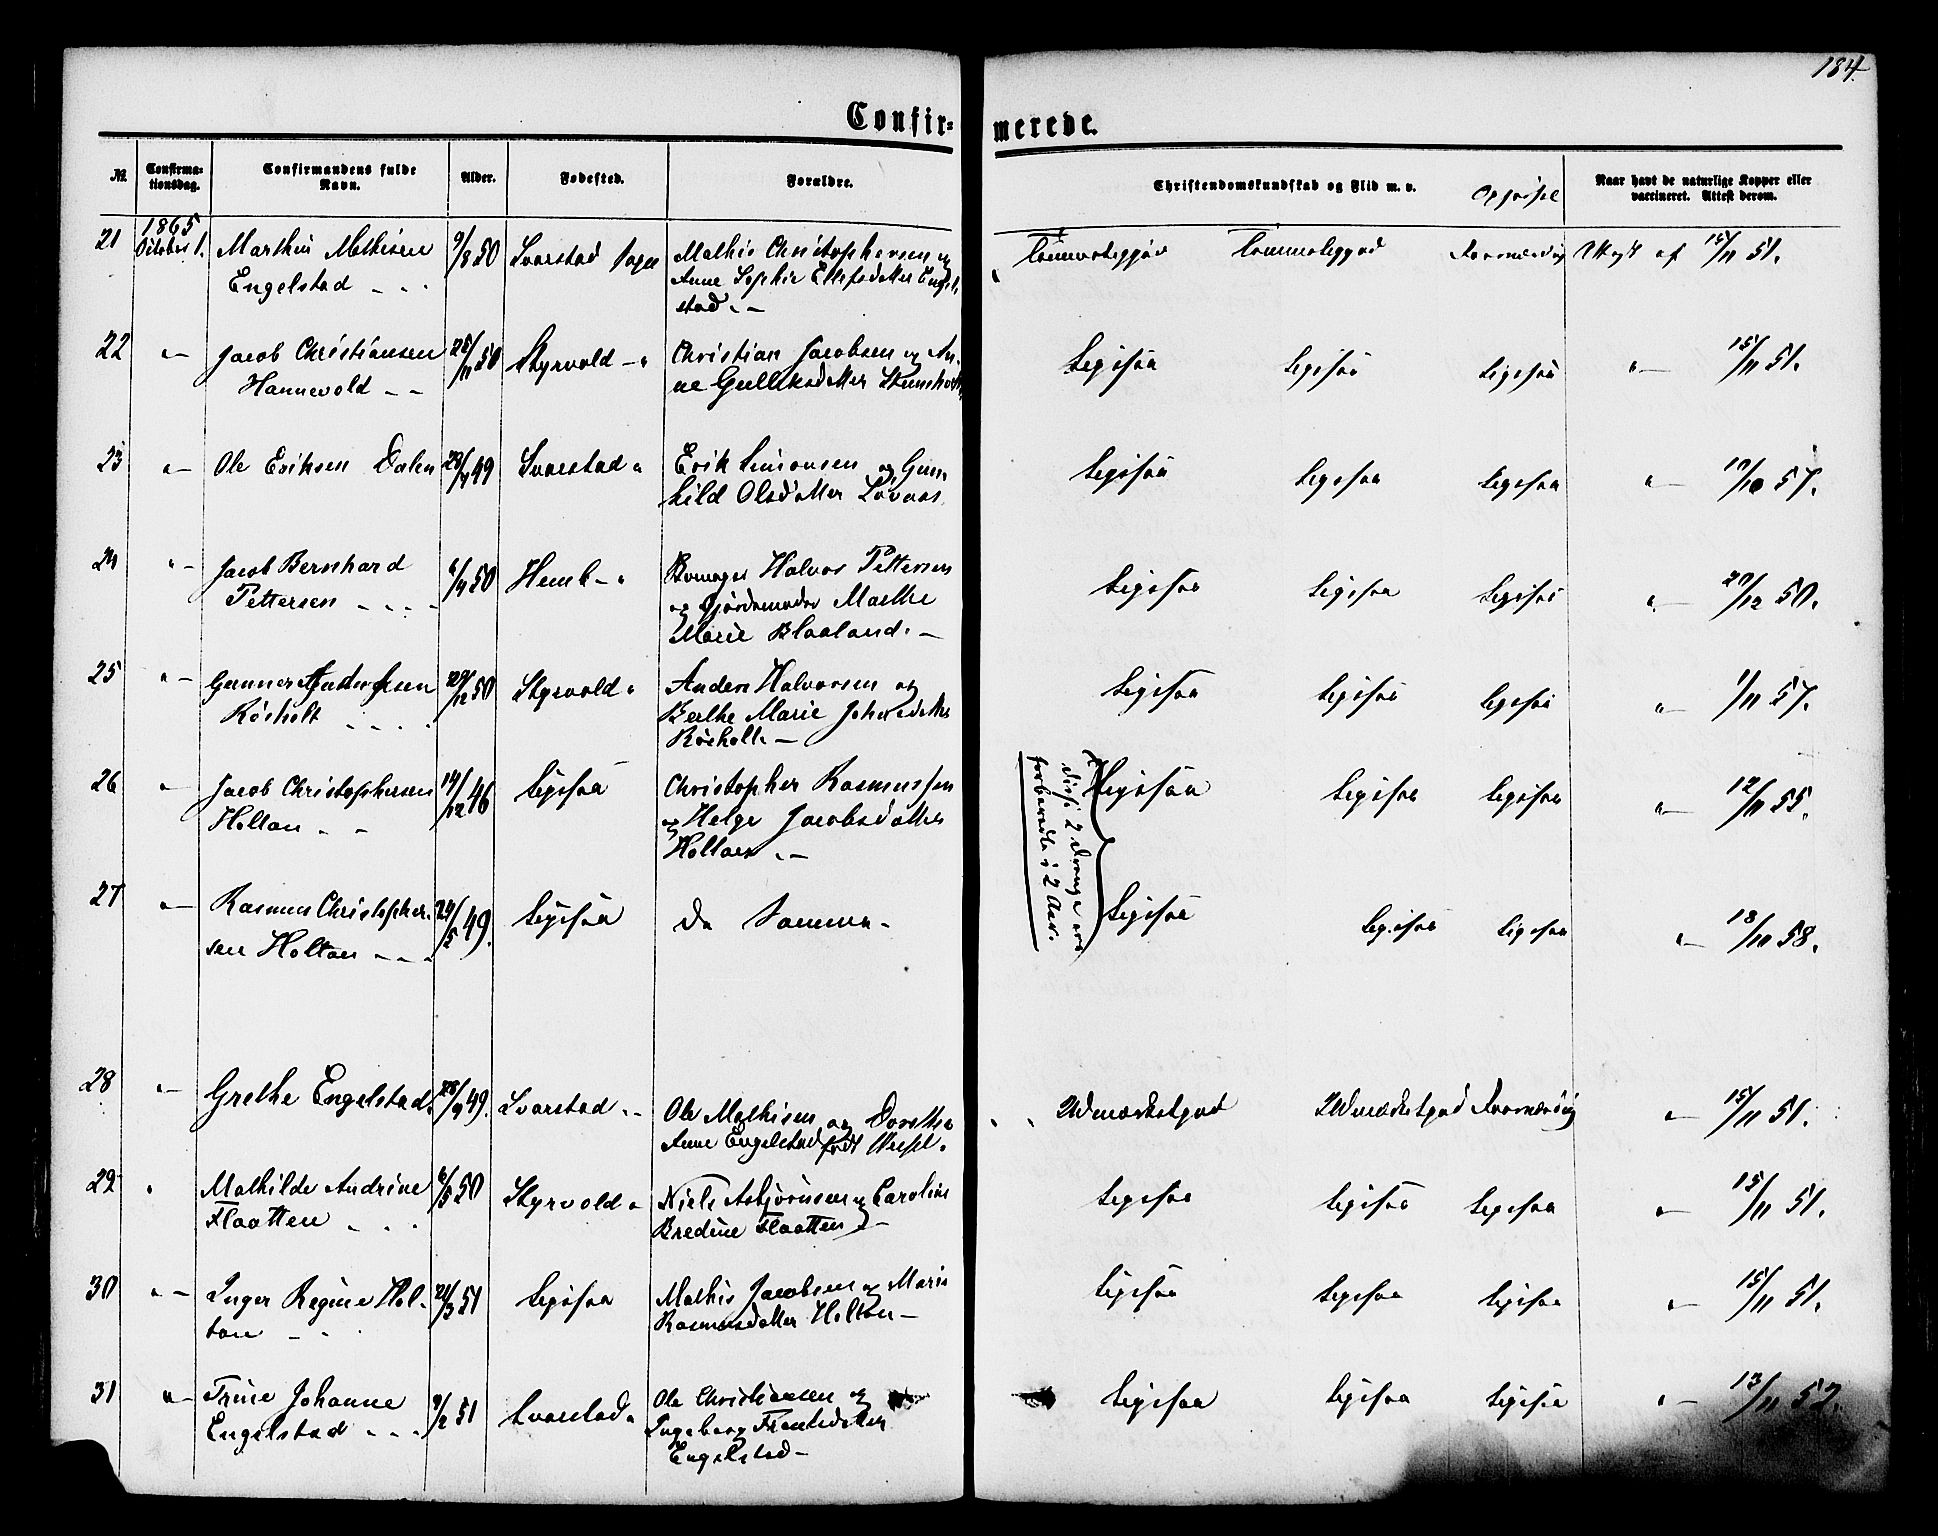 184.
Confir=
merede.
No. Confirma=tionsdag. Confirmandens fulde Navn. Alder. Fødested. Forældre. Christendomskundskab og Flid m. v. Opførsel Naar havt de naturlige Kopper eller vaccineret. Attest derom.
1865
21 October 1. Mathis Engelstad - - 9/8 50 Svarstad Sogn Mathis Christophersen og
Anne Sophie Ellefsdatter Engel=
stad. -
15/11 51.
22 "- Jacob Christiansen
Hannevold - - 25/11 50 Styrvold - " Christian Jacobsen og An=
ne Gulliksdatter
Ligesaa Ligesaa Ligesaa "- 15/11 51.
23 "- Ole Eriksen Dalen 49 Svarstad " Erik Simonsen og Gun=
hild Olsdatter
Ligesaa Ligesaa Ligesaa "- 57.
24 "- Jacob Bernhard
Pettersen - - - - 50 Hemb - " Halvor Pettersen
og Gjordemoder Marthe
Marie Blaaland. -
Ligesaa Ligesaa Ligesaa "- 50.
25 "- Gunner
Rösholt - - - - 50 Styrvold " Anders Halvorsen og
Berthe Marie
Rösholt -
Ligesaa Ligesaa Ligesaa "- 1/11 57.
26 "- Jacob Christophersen
Holtan - - 14/12 46 Ligesaa Christopher Rasmussen
og Helge Jacobsdatter
Holtan. -
disse 2 Drenge ere
forberedte i 2 Aar.
Ligesaa Ligesaa Ligesaa "- 12/11 55.
27 "- Rasmus Christopher=
sen Holtan - - - 24/5 49. Ligesaa De Samme -
Ligesaa Ligesaa Ligesaa "- 58.
28 "- Grethe Engelstad 49. Svarstad "- Ole Mathisen og Dorthe
Anne Engelstad født
Udmærketgod Udmærketgod "- 15/11 51.
29 " Mathilde Andrine
Flaatten - - 50 Styrvold " Niels Asbjörnsen og Caroline
Bredine Flaatten -
Ligesaa Ligesaa Ligesaa "- 15/11 51.
30 "- Inger Regine Hol=
tan - - 51 Ligesaa Mathis Jacobsen og Marie
Rasmusdatter Holtan -
Ligesaa Ligesaa Ligesaa "- 15/11 51.
31 "- Trine Johanne
Engelstad - - - 9/2 51 Svarstad " Ole Christiansen og
Ingeborg
Engelstad -
Ligesaa Ligesaa Ligesaa "- 13/11 52.